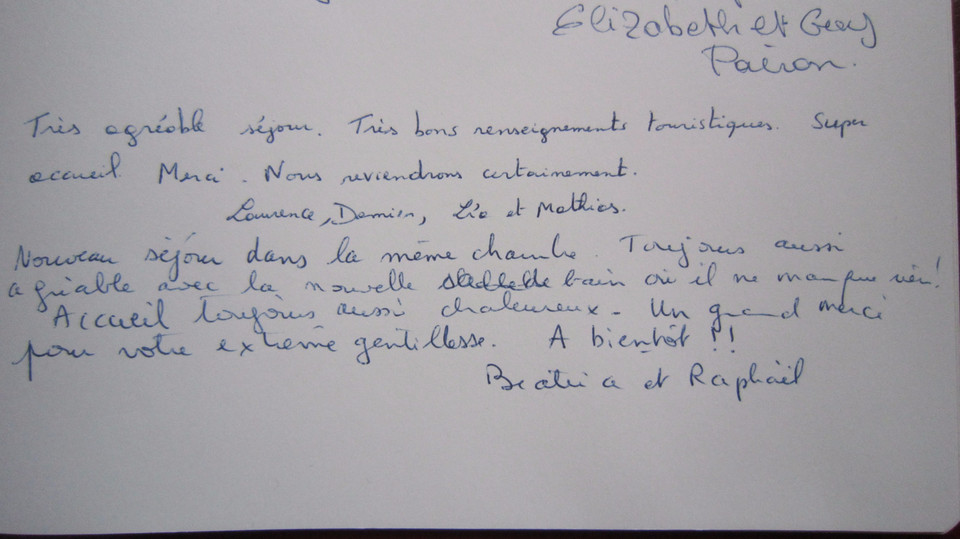 Elizabeth et Guy
Pairon.
Très agréable séjour. Très bons renseignements touristiques. Super
accueil. Merci. Nous reviendrons certainement.
Laurence, Damien, Léo et Mathias.
Nouveau séjour dans la même chambre. Toujours aussi
agréable avec la nouvelle salle de bain où il ne manque rien!
Accueil toujours aussi chaleureux - Un grand merci
pour votre extrême gentillesse. A bientôt !!
Béatrice et Raphaël